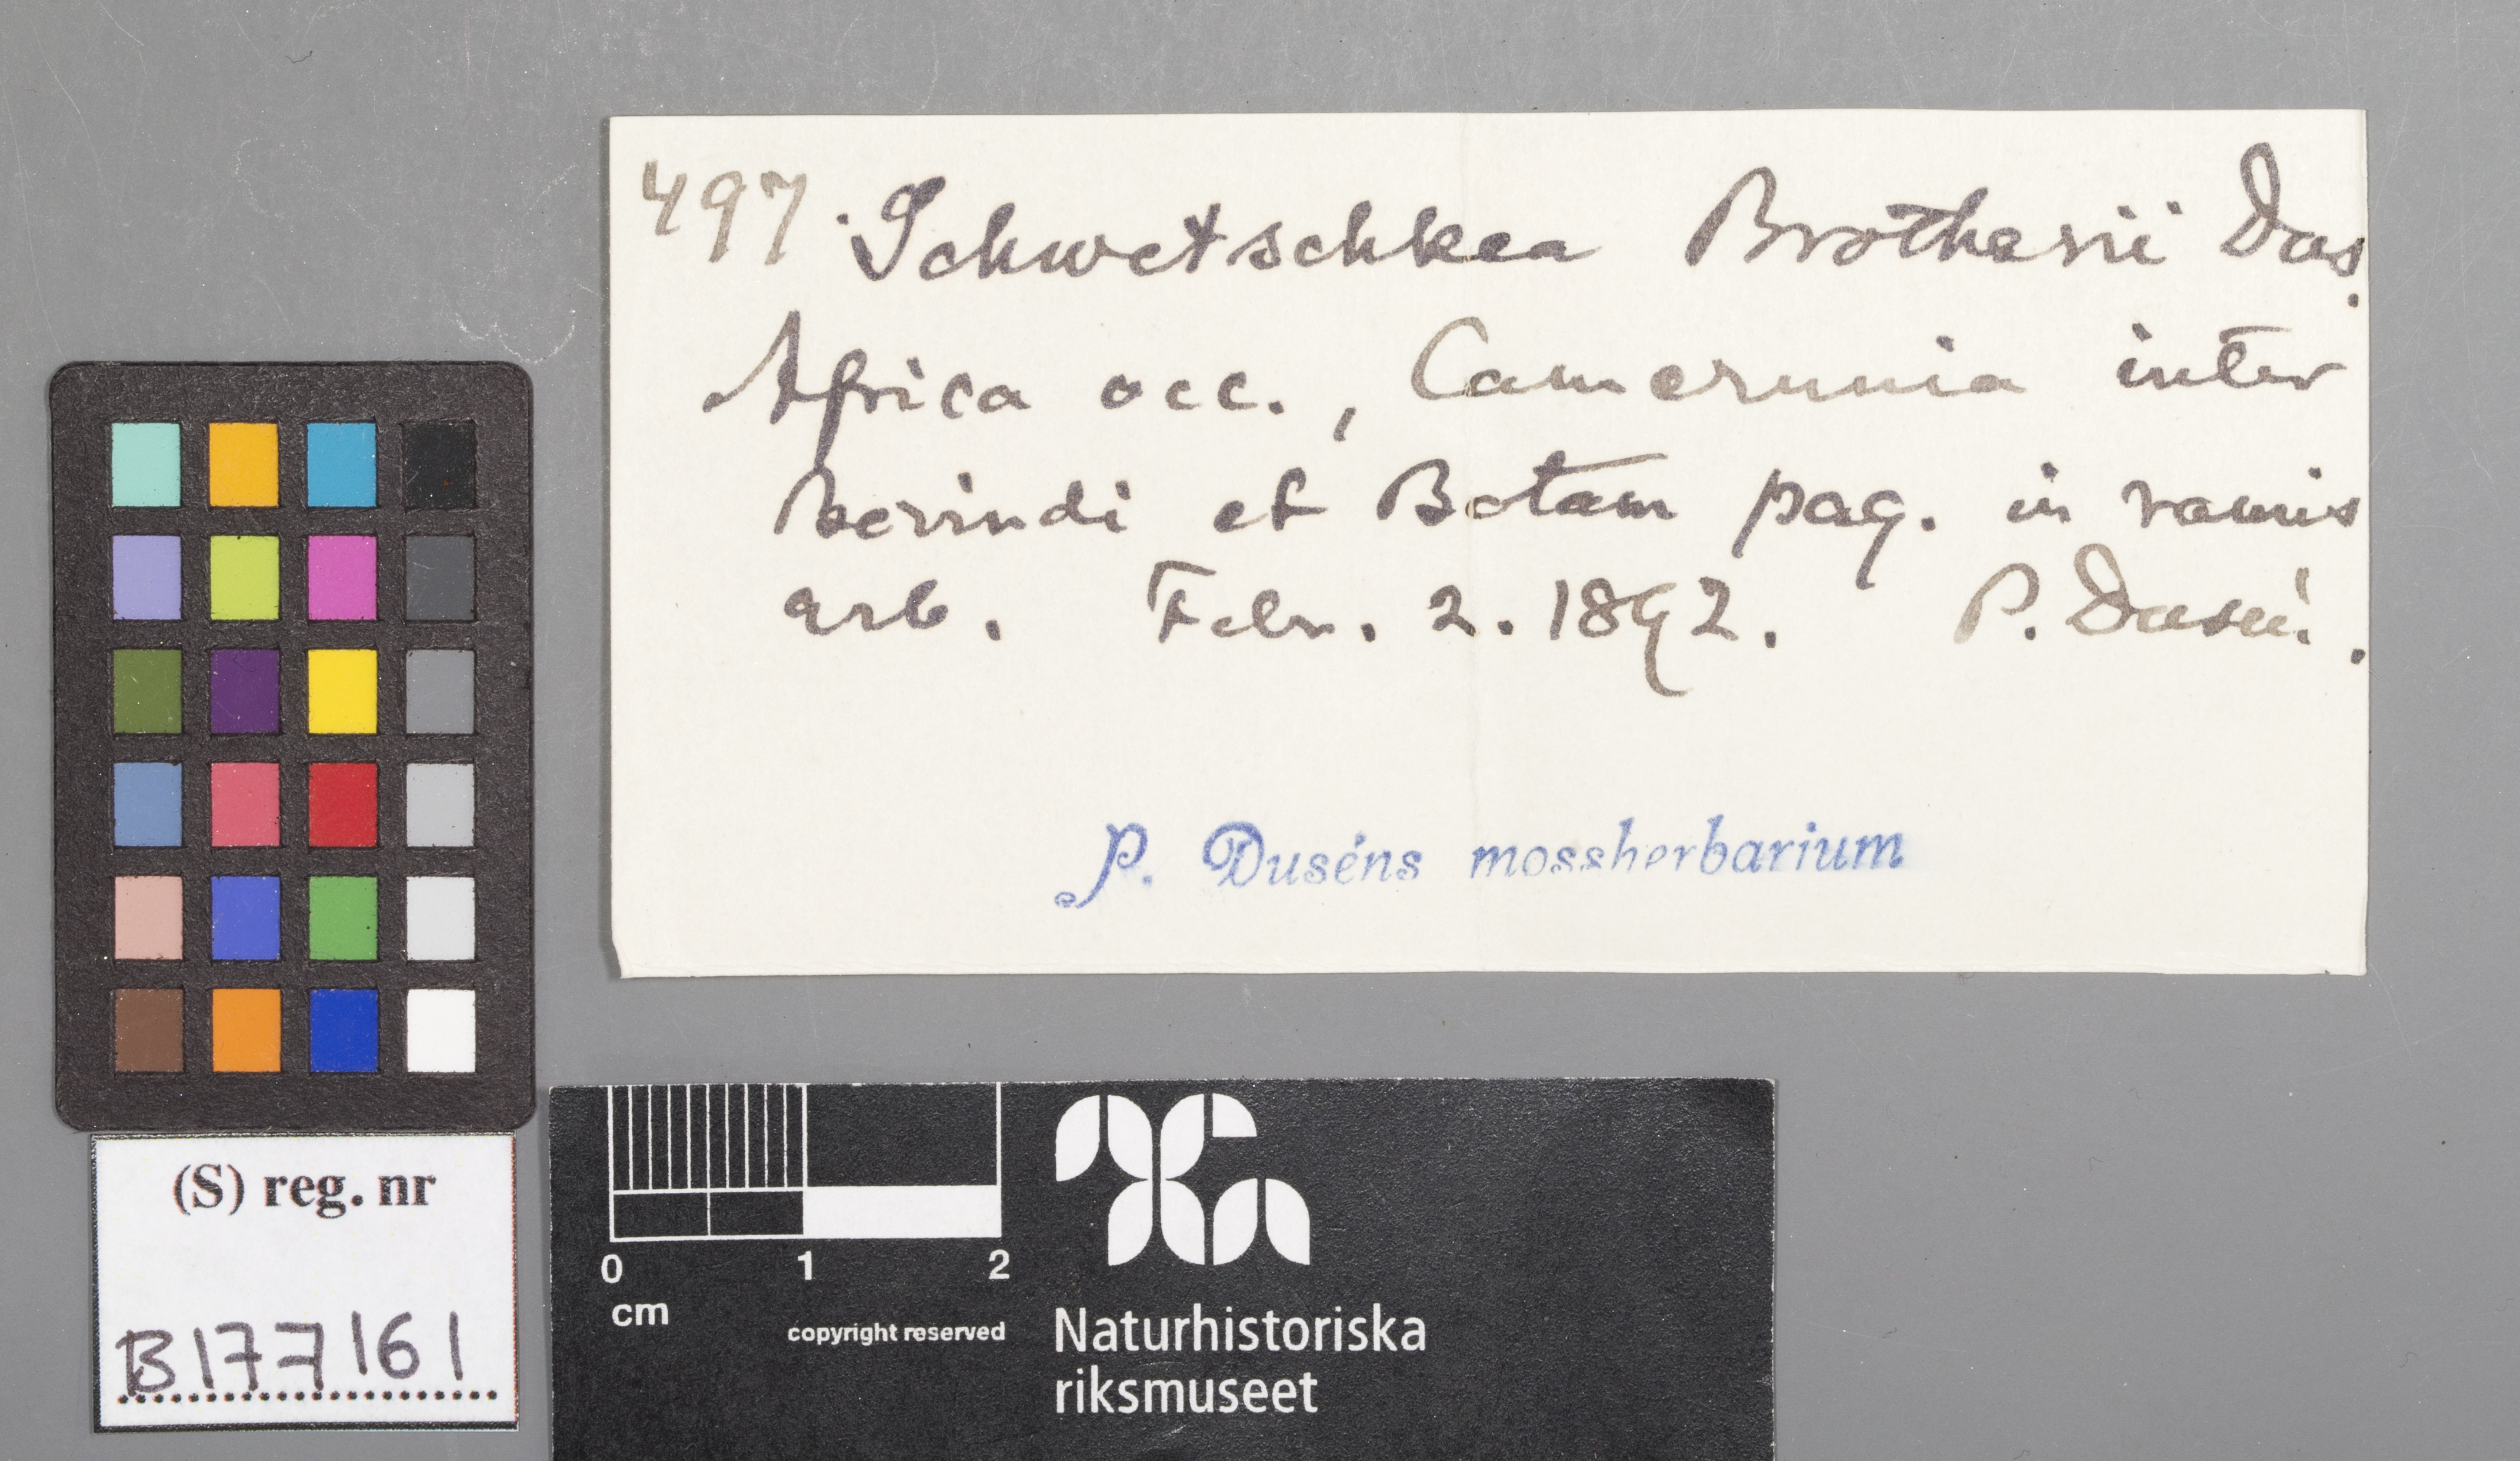 497. Schwetschkea Brotherii Dus.
Africa occ., Camerunia inter
et Botam pag. in ramis
arb. Febr. 2. 1892. P. Dusén.
P. Duséns mossherbarium
(S) reg. nr
B177161
0 1 2
cm
copyright reserved
Naturhistoriska
riksmuseet